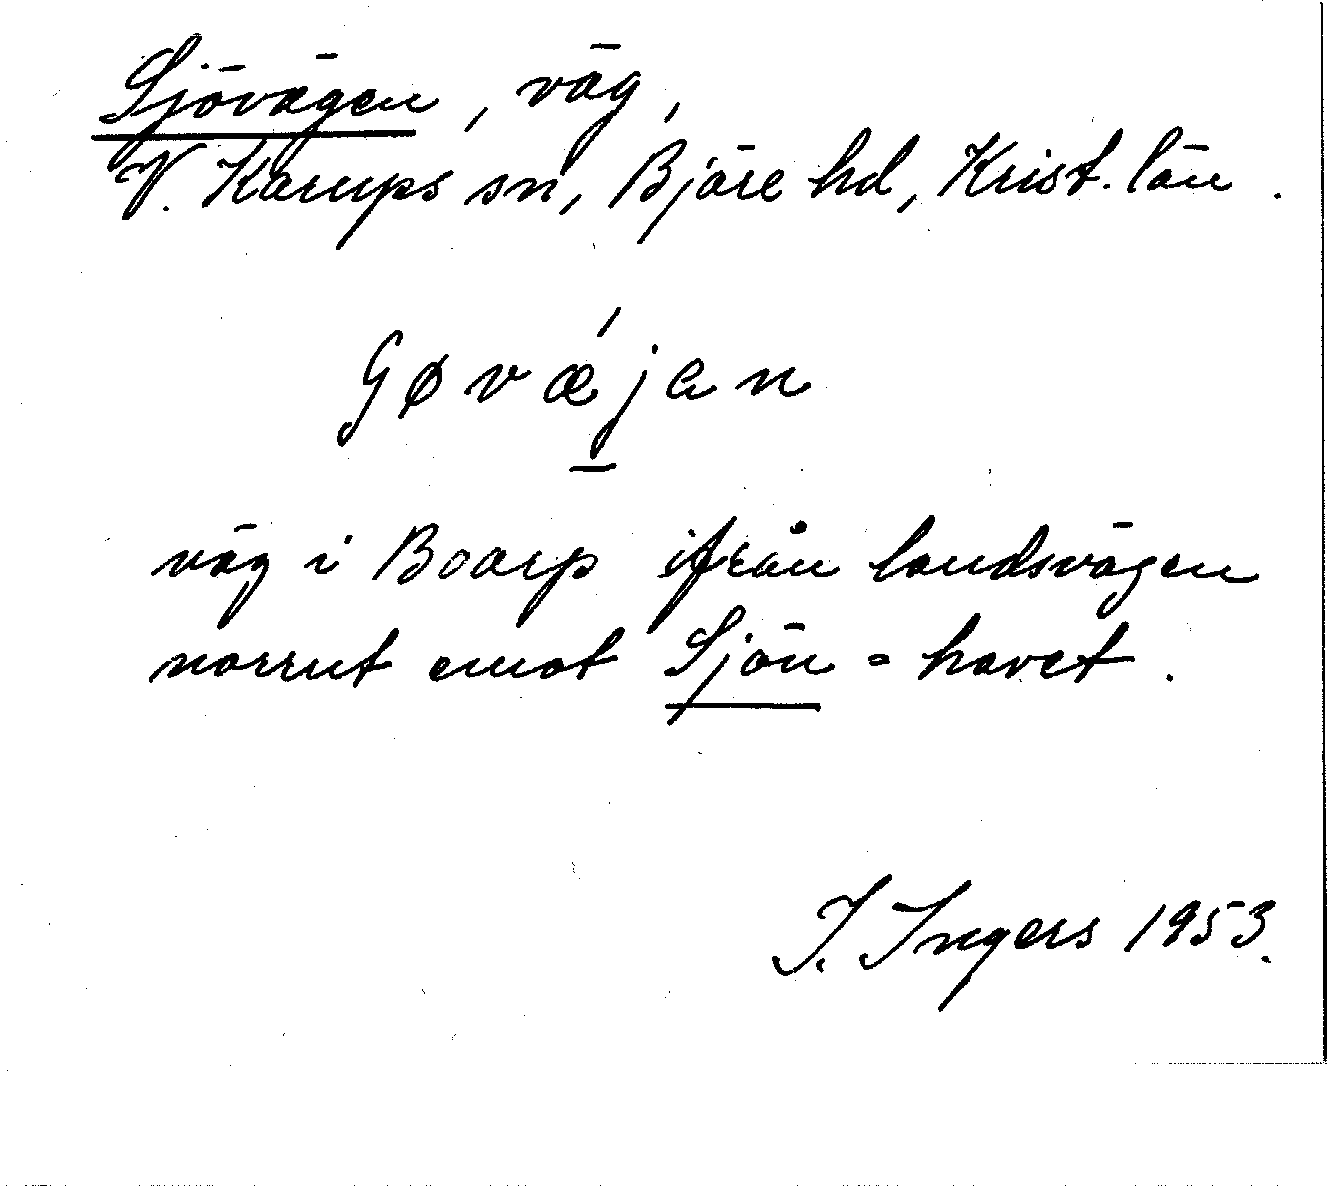 Sjövägen, väg,
V. Karups sn, Bjäre hd, Krist. län.
Gøvǽjan
väg i Boarp ifrån landsvägen
norrut emot Sjön = havet.
I. Ingers 1953.